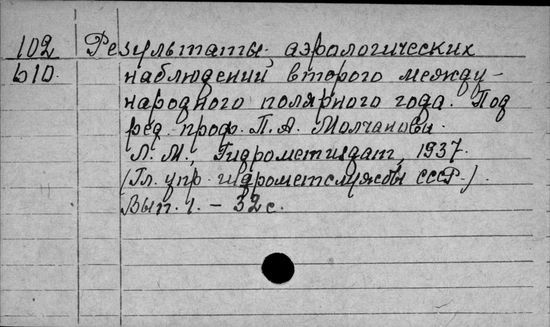 102 Результаты аэрологических
610. наблюдений второго между-
народного полярного года. Под
ред. проф. П. А. Молчанова.
Л. М., Гидрометиздат, 1937.
(Гл. упр. гидрометслужбы СССР.)
Вып. 1. – 32 с.